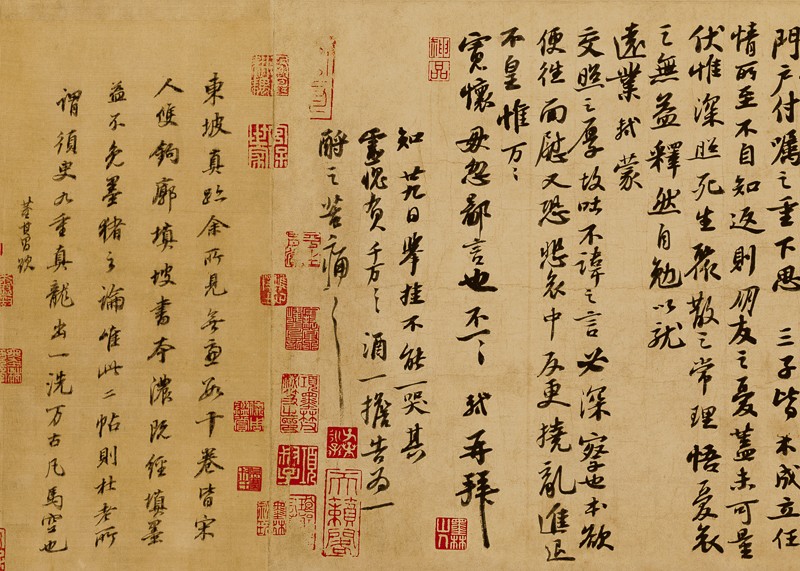 門户付囑之重下思　三子皆未成立任
情所至不自知返則朋友之憂蓋未可量
伏惟深照死生聚散之常理悟憂哀
之無益釋然自勉以就
遠業軾蒙
交照之厚故吐不諱之言必深察也本欲
便往面慰又恐悲哀中反更撓亂進退
不皇惟万〻
寬懷毋忽鄙言也不一〻 軾再拜
知廿九日舉挂不能一哭其
靈愧負千万〻酒一擔告為一
酹之苦痛〻
神品
墨林山人
天籟閣
東坡真跡余所見無慮數十卷皆宋
人雙鈎廓填坡書本濃既經填墨
益不免墨豬之論唯此二帖則杜老所
謂須臾九重真龍出一洗万古凡馬空也
董其昌跋